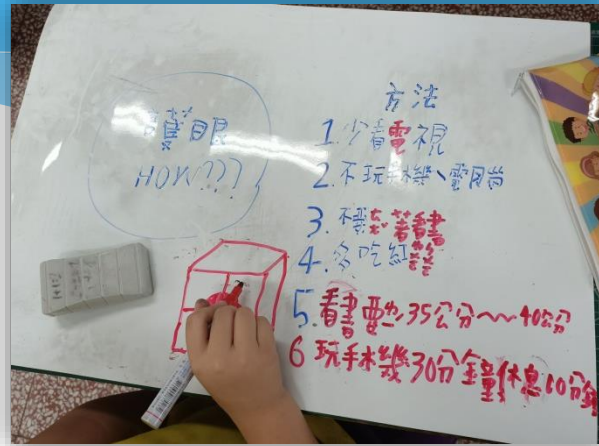 護眼
HOW???
方法
1.少看電視
2.不玩手機、電腦
3.不要看書
4.多吃紅
5.看書要35公分~~40公分
6玩手機30分鐘休息10分鐘